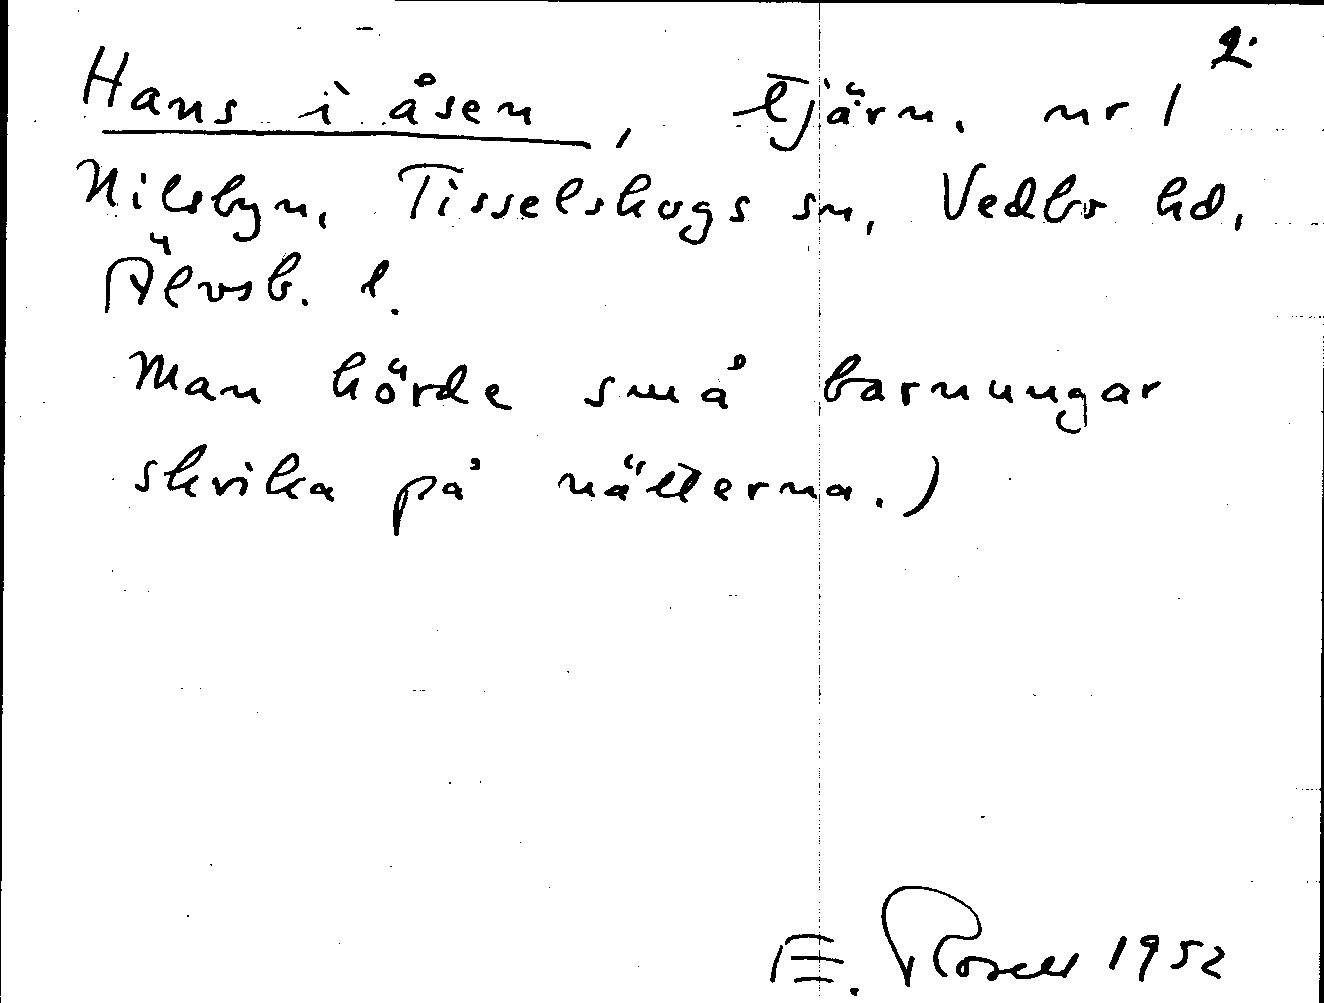 2.
Hans i åsen, tjärn, nr 1
Nilsbyn, Tisselskogs sn, Vedbo hd,
Älvsb. l.
Man hörde små barnungar
skrika på nätterna.)
E. Rosell 1952